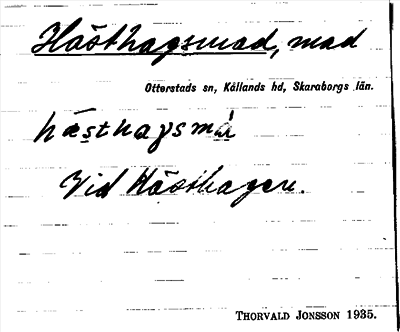 Hästhagsmad, mad
Otterstads sn, Kållands hd, Skaraborgs län.
hästhagsmå
Vid Hästhagen.
THORVALD JONSSON 1935.